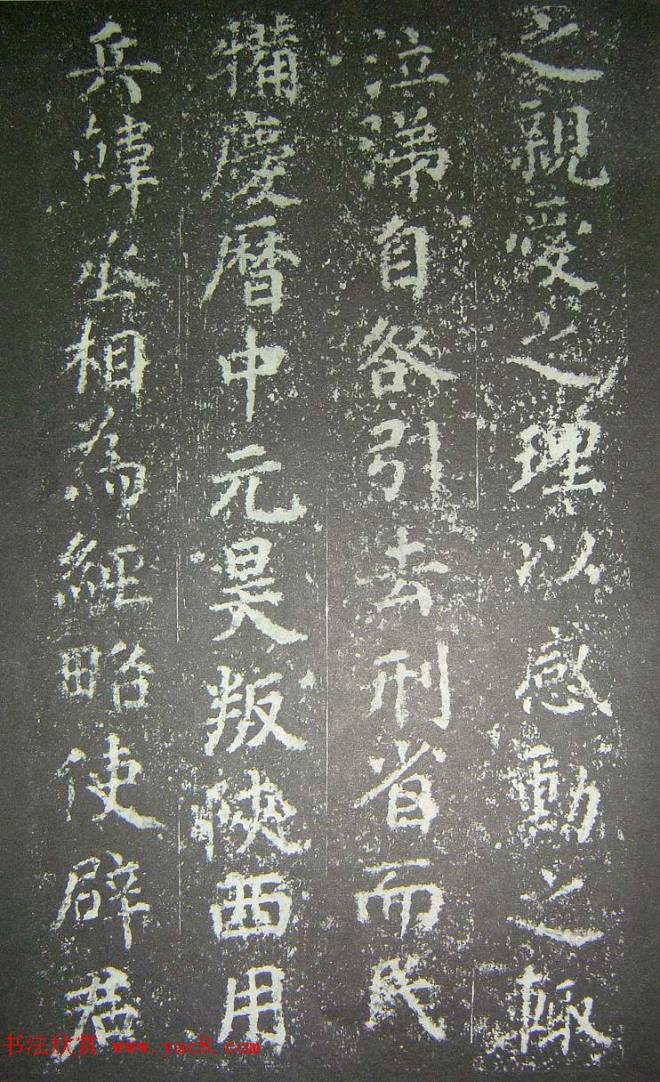 之親愛之理以感動之輒
泣涕自咎引去刑省而民
犕慶曆中元昊叛陝西用
兵韓丞相為經略使辟君
书法欣赏 www.yac8.com